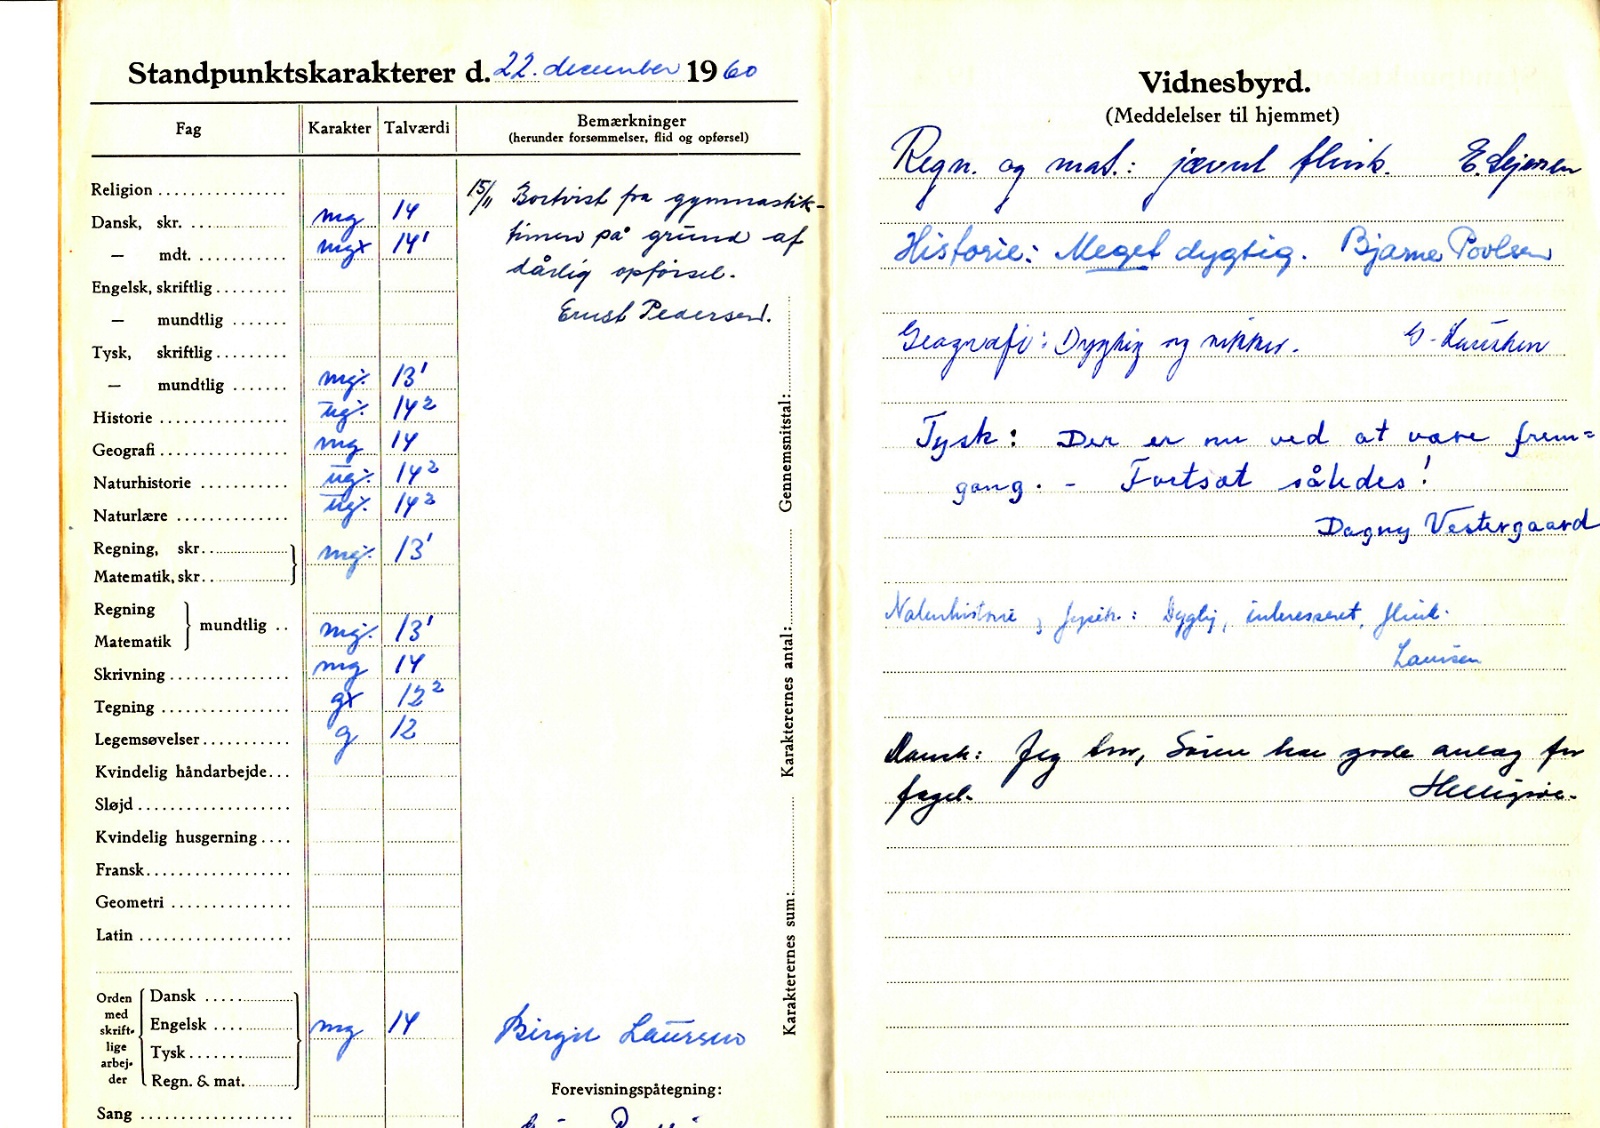 Standpunktskarakterer d. 22. december 1960
Fag Karakter Talværdi Bemærkninger
(herunder forsømmelser, flid og opførsel)
Religion
Dansk, skr. mg 14
— mdt. mg× 14¹
Engelsk, skriftlig
— mundtlig
Tysk, skriftlig
— mundtlig mg÷ 13¹
Historie ug÷ 14²
Geografi mg 14
Naturhistorie ug÷ 14²
Naturlære ug÷ 14²
Regning, skr. mg÷ 13¹
Matematik, skr.
Regning
Matematik } mundtlig mg÷ 13¹
Skrivning mg 14
Tegning g× 12²
Legemsøvelser g 12
Kvindelig håndarbejde
Sløjd
Kvindelig husgerning
Fransk
Geometri
Latin
Orden med skriftlige arbejder
Dansk
Engelsk mg 14
Tysk
Regn. & mat.
Sang
15/11 Bortvist fra gymnastik-
timen på grund af
dårlig opførsel.
Ernst Pedersen.
Birgit Laursen
Forevisningspåtegning:
Karakterernes sum: Karakterernes antal: Gennemsnitstal:
Vidnesbyrd.
(Meddelelser til hjemmet)
Regn. og mat.: jævnt flink. E. Lejersen
Historie: Meget dygtig. Bjarne Povlsen
Geografi: Dygtig og sikker. G.
Tysk: Der er nu ved at være frem=
gang. - Fortsæt således!
Dagny Vestergaard
Naturhistorie og fysik.: Dygtig, interesseret, flink.
Laursen
Dansk: Jeg tror, Søren har gode anlæg for
faget.